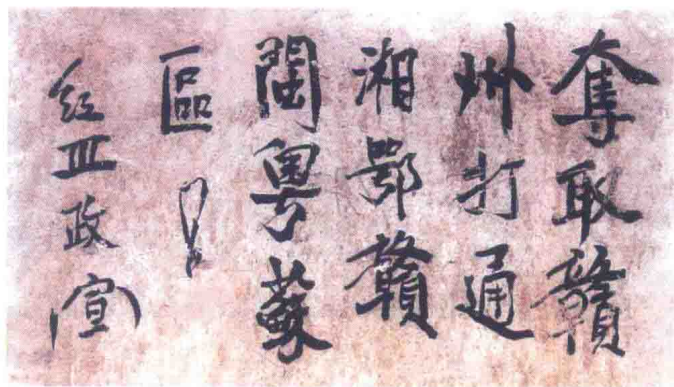 奪取贛
州打通
湘鄂贛
閩粤蘇
區！
紅Ⅲ政（宣）